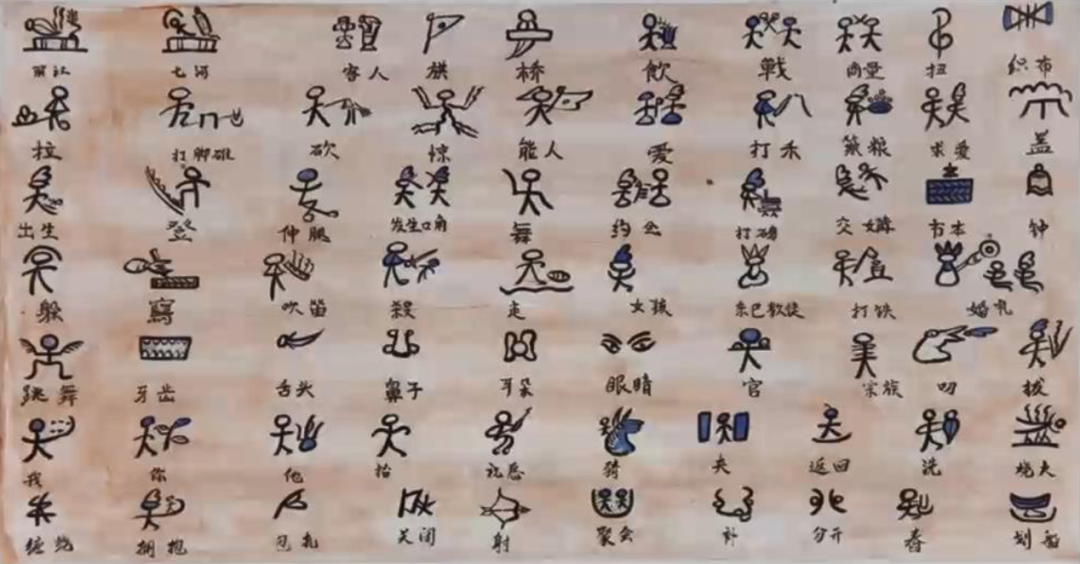 丽江 七河 客人 旗 桥 飲 戰 商量 扭 织布
拉 打脚碓 砍 惊 能人 爱 打禾 筑粮 求爱 盖
出生 登 伸腿 发生口角 舞 约会 打磅 交媾 书本 钟
躲 寫 吹笛 殺 走 女孩 东巴教徒 打铁 婚礼
跳舞 牙齿 舌头 鼻子 耳朵 眼睛 官 宗族 叨 拔
我 你 他 抬 记恶 猜 夹 返回 洗 烧火
缠绕 拥抱 包扎 关闭 射 聚会 补 分开 春 划船